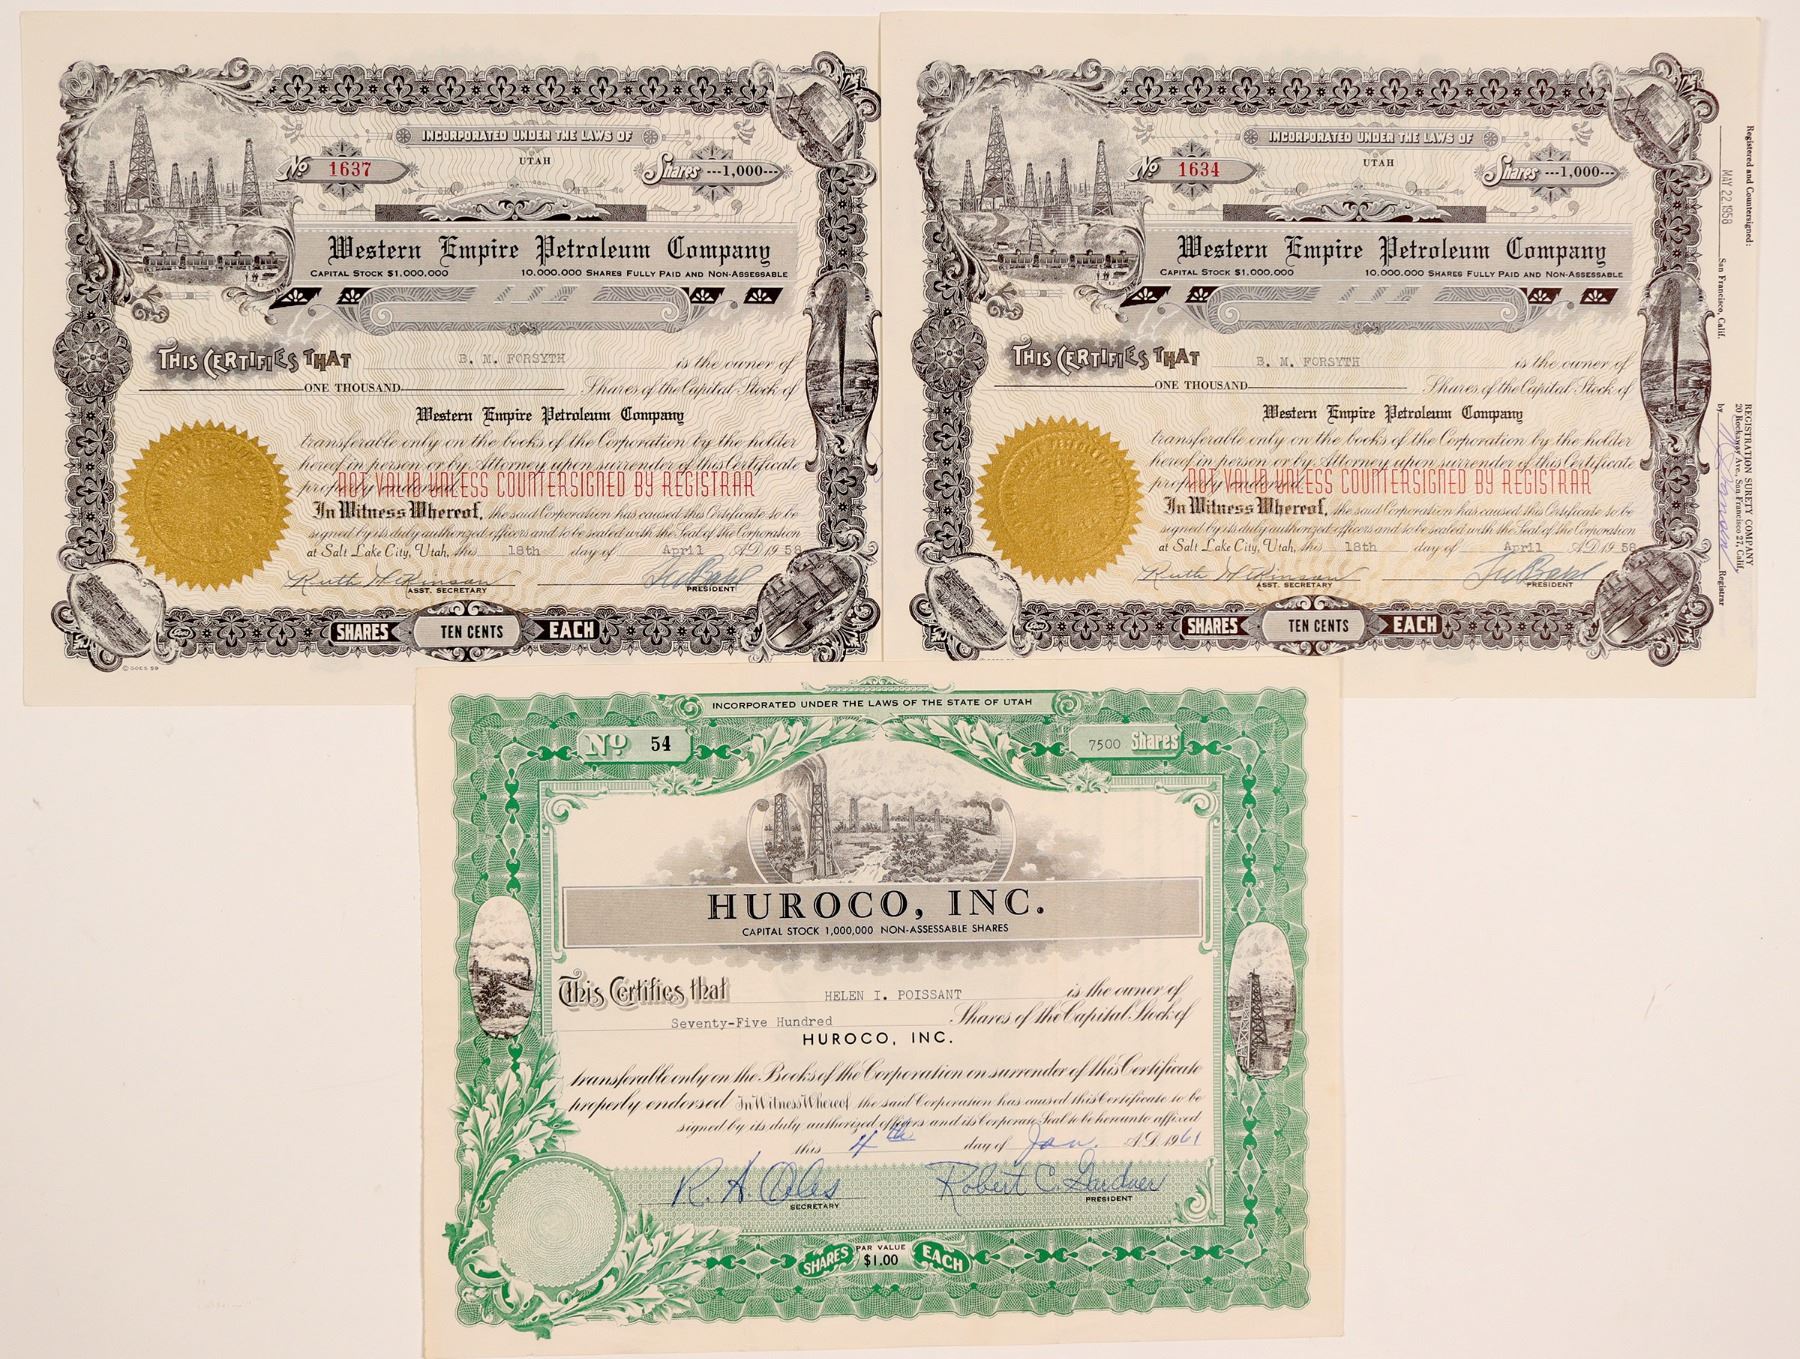 INCORPORATED UNDER THE LAWS OF
UTAH
No 1637
Shares ---1,000---
Western Empire Petroleum Company
CAPITAL STOCK $1,000.000 10.000.000 SHARES FULLY PAID AND NON-ASSESSABLE
THIS CERTIFIES THAT B. M. FORSYTH is the owner of
ONE THOUSAND Shares of the Capital Stock of
Western Empire Petroleum Company
transferable only on the books of the Corporation by the holder
hereof in person or by Attorney upon surrender of this Certificate
properly endorsed.
NOT VALID UNLESS COUNTERSIGNED BY REGISTRAR
In Witness Whereof, the said Corporation has caused this Certificate to be
signed by its duly authorized officers and to be sealed with the Seal of the Corporation
at Salt Lake City, Utah, this 18th day of April A.D. 1958
Ruth Atkinson
ASST. SECRETARY PRESIDENT
SHARES TEN CENTS EACH
© GOES 59
INCORPORATED UNDER THE LAWS OF
UTAH
No 1634
Shares ---1,000---
Western Empire Petroleum Company
CAPITAL STOCK $1,000.000 10.000.000 SHARES FULLY PAID AND NON-ASSESSABLE
THIS CERTIFIES THAT B. M. FORSYTH is the owner of
ONE THOUSAND Shares of the Capital Stock of
Western Empire Petroleum Company
transferable only on the books of the Corporation by the holder
hereof in person or by Attorney upon surrender of this Certificate
properly endorsed.
NOT VALID UNLESS COUNTERSIGNED BY REGISTRAR
In Witness Whereof, the said Corporation has caused this Certificate to be
signed by its duly authorized officers and to be sealed with the Seal of the Corporation
at Salt Lake City, Utah, this 18th day of April A.D. 1958
Ruth Atkinson
ASST. SECRETARY PRESIDENT
SHARES TEN CENTS EACH
Registered and Countersigned:
MAY 22 1958 San Francisco, Calif.
REGISTRATION SURETY COMPANY
20 Rockaway Ave., San Francisco 27, Calif.
by Registrar
INCORPORATED UNDER THE LAWS OF THE STATE OF UTAH
No 54
7500 Shares
HUROCO, INC.
CAPITAL STOCK 1,000,000 NON-ASSESSABLE SHARES
This Certifies that HELEN I. POISSANT is the owner of
Seventy-Five Hundred Shares of the Capital Stock of
HUROCO, INC.
transferable only on the Books of the Corporation on surrender of this Certificate
properly endorsed In Witness Whereof the said Corporation has caused this Certificate to be
signed by its duly authorized officers and its Corporate Seal to be hereunto affixed
this 4th day of Jan. A.D. 1961
R. A. Oles Robert C. Gardner
SECRETARY PRESIDENT
SHARES PAR VALUE $1.00 EACH